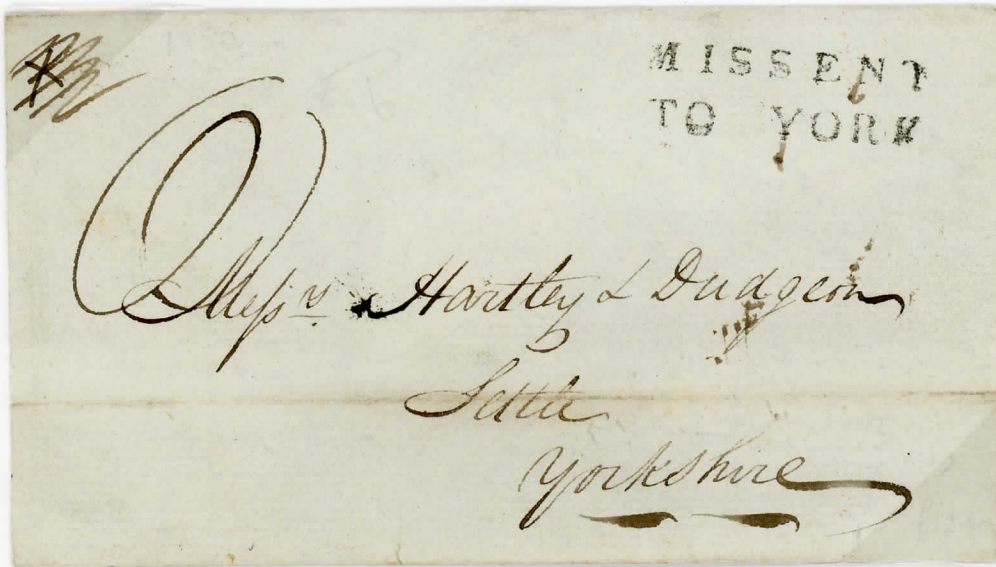 MISSENT
TO YORK
Messrs Hartley & Dudgeon
Settle
Yorkshire